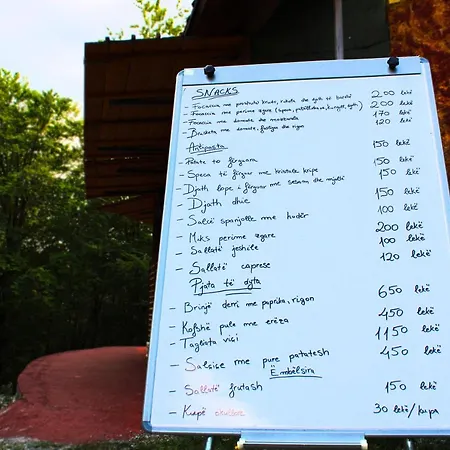 SNACKS
- Focaccia me proshuto krudo, rukola dhe djath të bardhë 200 lekë
- Focaccia me perime zgare (speca, patëllxhan, kungull, djath) 200 lekë
- Focaccia me domate dhe mozzarela 170 lekë
- Brusketa me domate, fasligen dhe rigon 120 lekë
Antipasta
- Patate të fërguara 150 lekë
- Speca të fërguar me kristale kripe 150 lekë
- Djath lope i fërguar me sesam dhe mjaltë 150 lekë
- Djath dhie 150 lekë
- Salcë spanjolle me hudër 100 lekë
- Miks perime zgare 200 lekë
- Sallatë jeshile 100 lekë
- Sallatë caprese 120 lekë
Pjata të dyta
- Brinjë derri me paprika, rigon 650 lekë
- Kofshë pule me erëza 450 lekë
- Tagliata viçi 1150 lekë
- Salsiçe me pure patatesh 450 lekë
Ëmbëlsira
- Sallatë frutash 150 lekë
- Kupë akullore 30 lekë/kupa